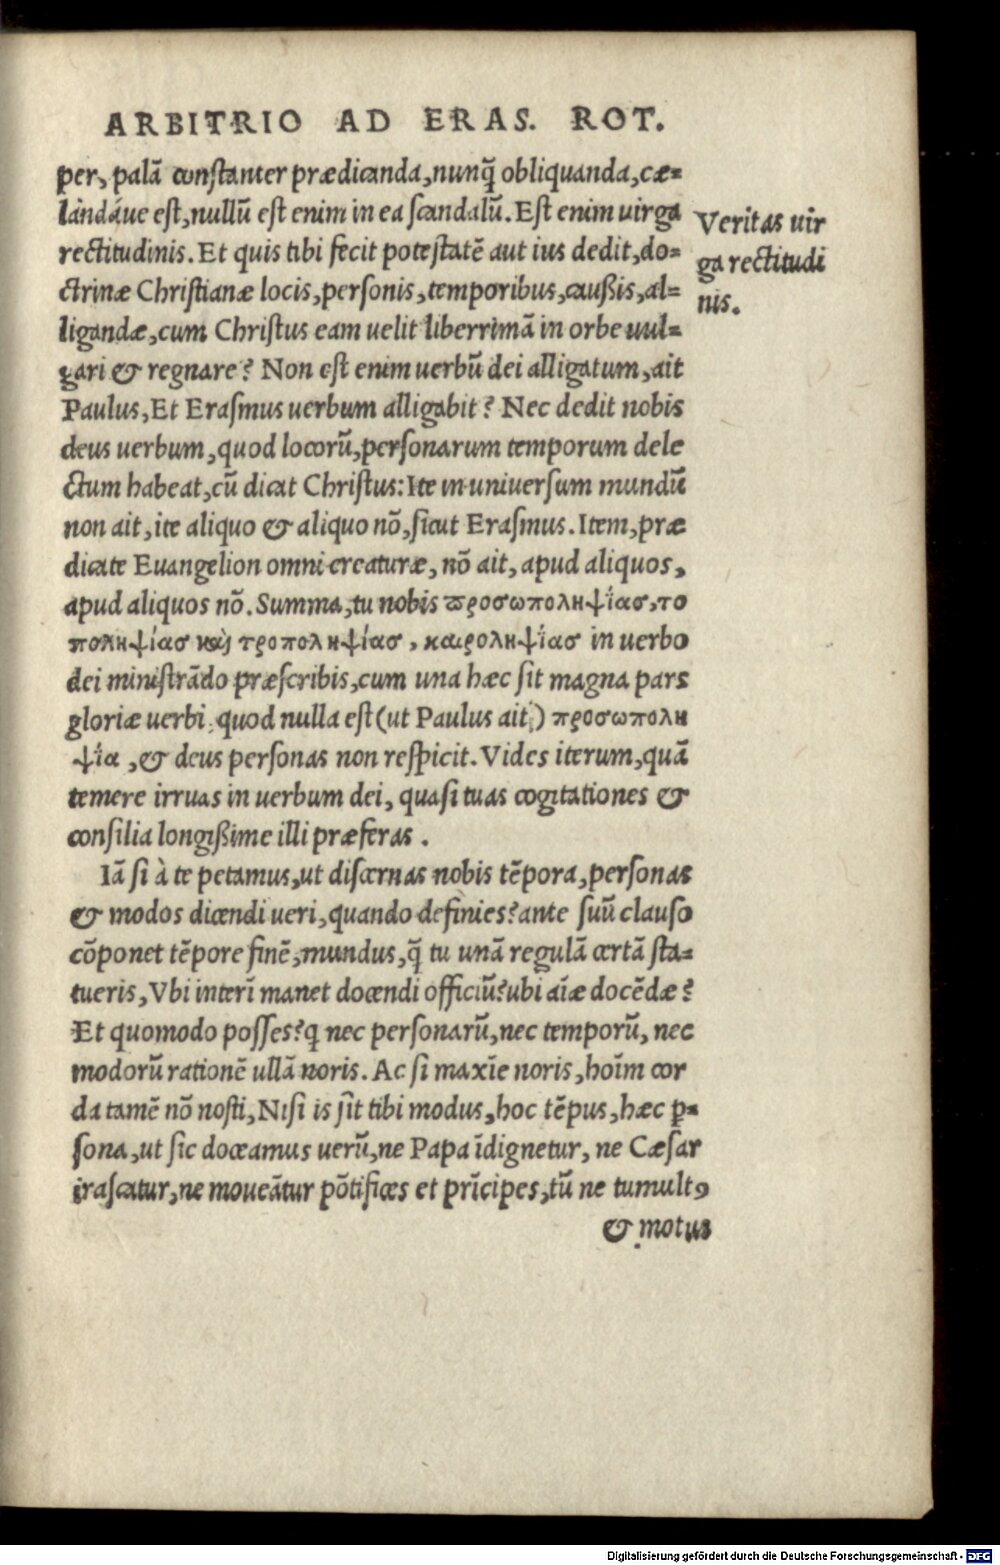 ARBITRIO AD ERAS. ROT.
per, palā constanter prædicanda, nunq̄ obliquanda, cæ-
landáue est, nullū est enim in ea scandalū. Est enim uirga
rectitudinis. Et quis tibi fecit potestatē aut ius dedit, do-
ctrinæ Christianæ locis, personis, temporibus, caußis, al-
ligandæ, cum Christus eam uelit liberrimā in orbe uul-
gari & regnare? Non est enim uerbū dei alligatum, ait
Paulus, Et Erasmus uerbum alligabit? Nec dedit nobis
deus uerbum, quod locorū, personarum temporum dele
ctum habeat, cū dicat Christus: Ite in uniuersum mundū
non ait, ite aliquo & aliquo nō, sicut Erasmus. Item, præ
dicate Euangelion omni creaturæ, nō ait, apud aliquos,
apud aliquos nō. Summa, tu nobis ϖροσωποληψίασ, το
ποληψίασ καὶ τροποληψίασ, καιροληψίασ in uerbo
dei ministrādo præscribis, cum una hæc sit magna pars
gloriæ uerbi, quod nulla est (ut Paulus ait) προσωπολη
ψία, & deus personas non respicit. Vides iterum, quā
temere irruas in uerbum dei, quasi tuas cogitationes &
consilia longißime illi præferas.
Iā si à te petamus, ut discernas nobis tēpora, personas
& modos dicendi ueri, quando definies? ante suū clauso
cōponet tēpore finē, mundus, q̄ tu unā regulā certā sta-
tueris, Vbi interī manet docendi officiū? ubi aīæ docēdæ?
Et quomodo posses? q nec personarū, nec temporū, nec
modorū rationē ullā noris. Ac si maxīe noris, hoīm cor
da tamē nō nosti, Nisi is sit tibi modus, hoc tēpus, hæc ꝑ-
sona, ut sic doceamus uerū, ne Papa īdignetur, ne Cæsar
irascatur, ne moueātur pōtifices et prīcipes, tū ne tumultꝯ
& motus
Veritas uir
ga rectitudi
nis.
Digitalisierung gefördert durch die Deutsche Forschungsgemeinschaft - DFG